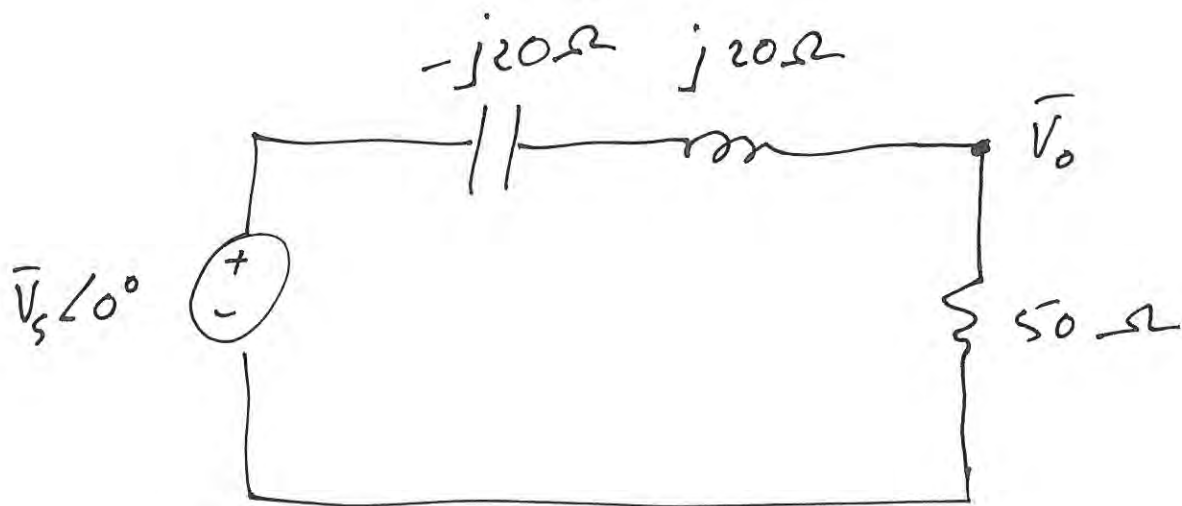 -j20Ω j20Ω
V̅₀
+
V̅ₛ∠0°
-
50 Ω